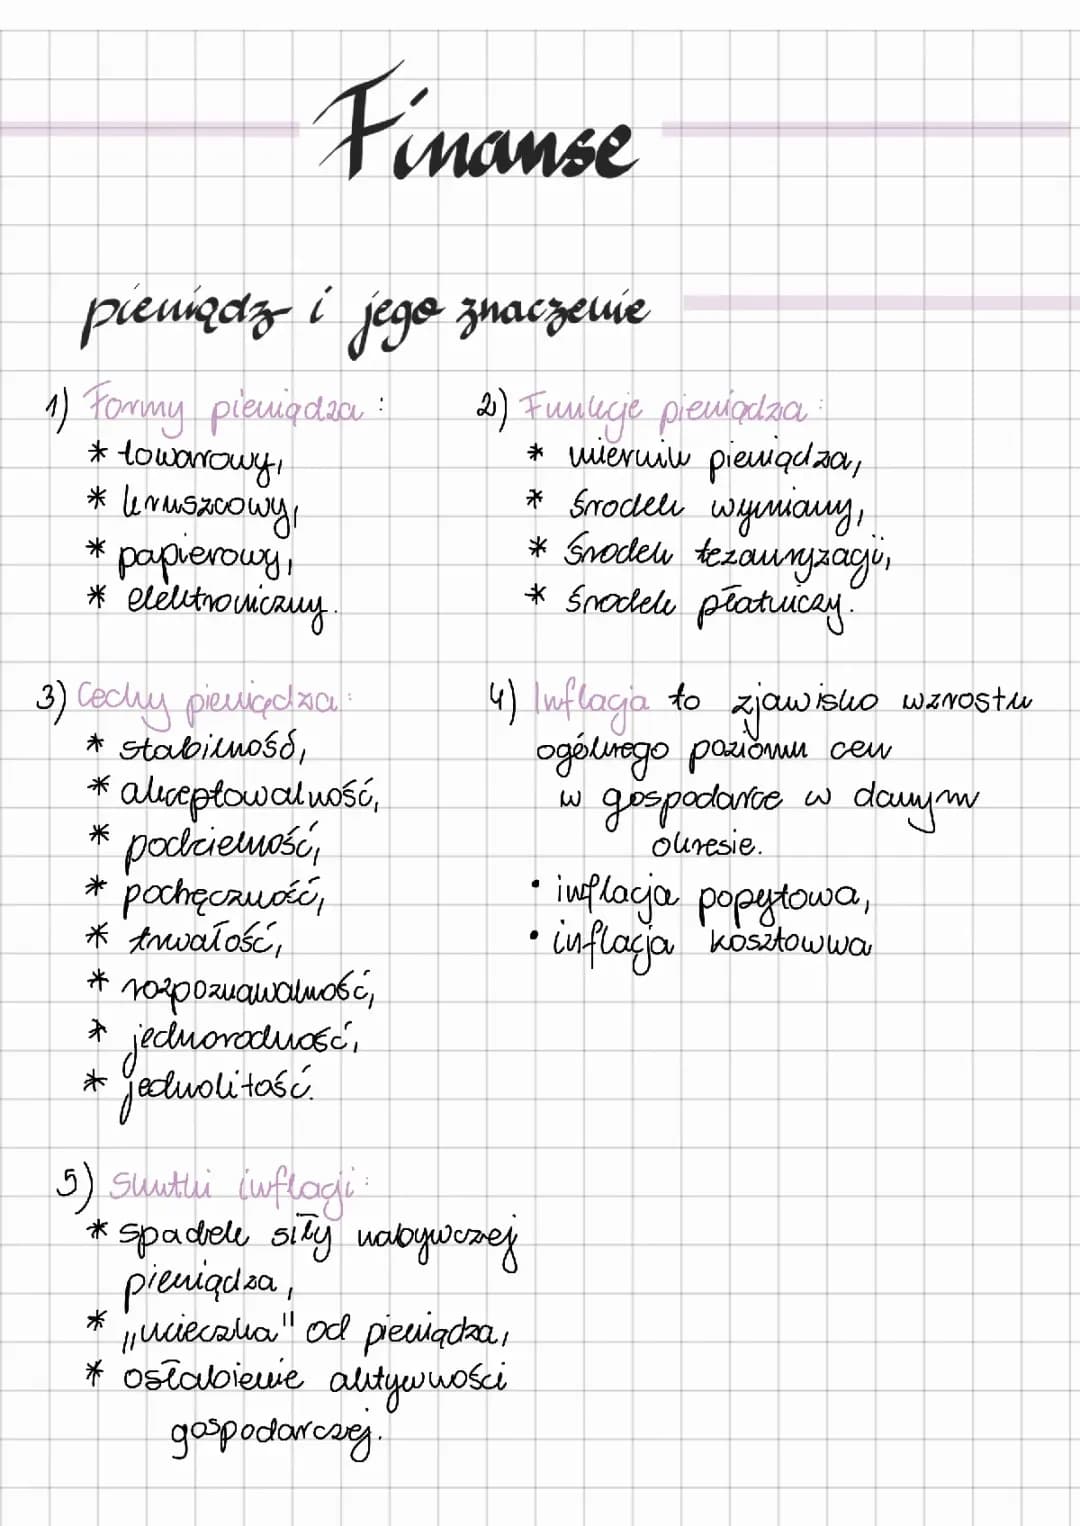 Finanse
pieniądz i jego znaczenie
1) Formy pieniądza:
* towarowy,
* kruszcowy,
* papierowy,
* elektroniczny.
2) Funkcje pieniądza:
* miernik pieniądza,
* środek wymiany,
* środek tezauryzacji,
* środek płatniczy.
3) Cechy pieniądza:
* stabilność,
* akceptowalność,
* podzielność,
* poręczność,
* trwałość,
* rozpoznawalność,
* jednorodność,
* jednolitość.
4) Inflacja to zjawisko wzrostu
ogólnego poziomu cen
w gospodarce w danym
okresie.
• inflacja popytowa,
• inflacja kosztowwa
5) Skutki inflacji:
* spadek siły nabywczej
pieniądza,
* „ucieczka" od pieniądza,
* osłabienie aktywności
gospodarczej.